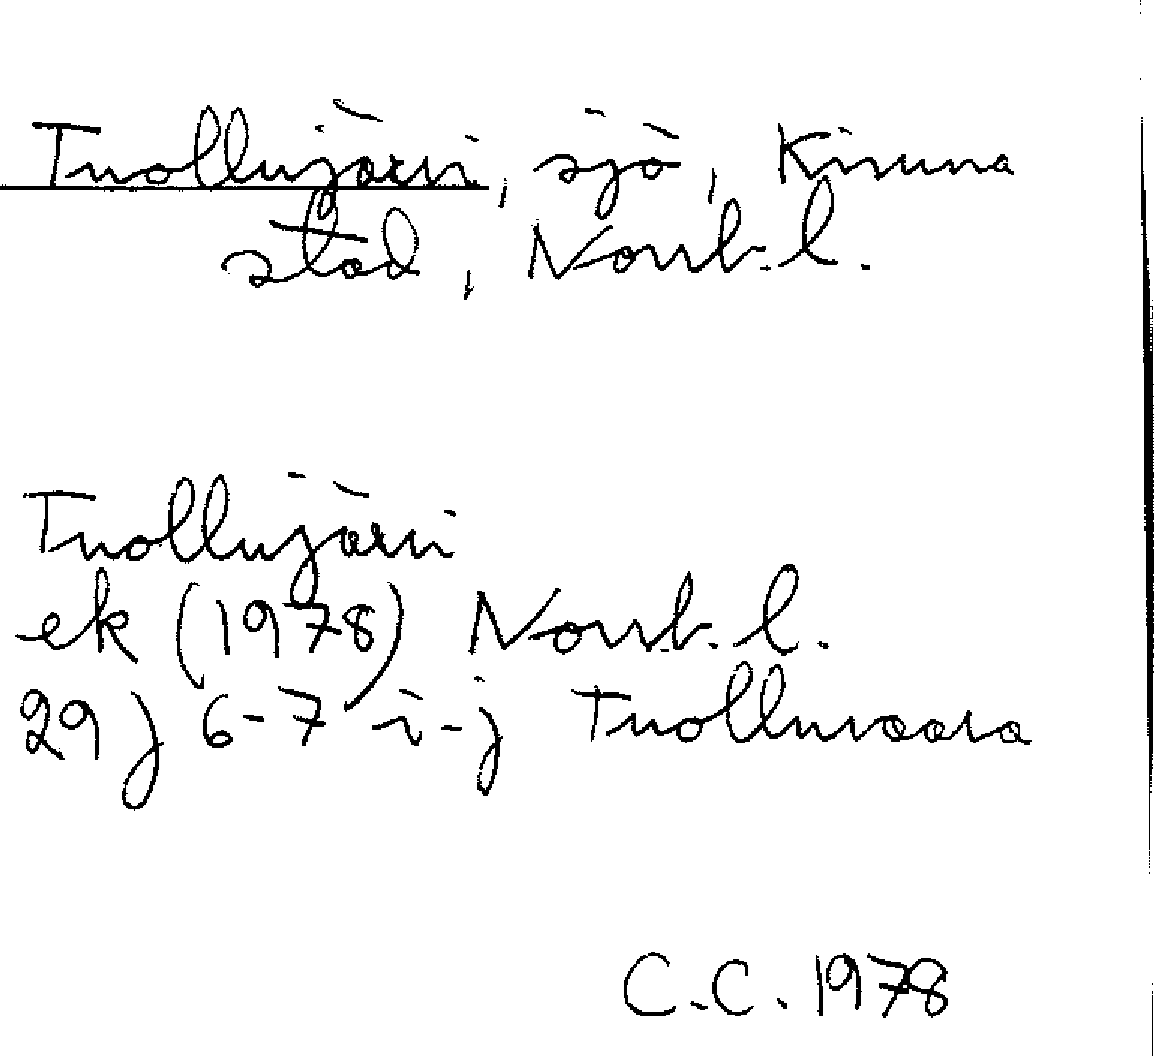 Tuollujärvi, sjö, Kiruna
stad, Norrb. l.
Tuollujärvi
ek (1978) Norrb. l.
29 J 6-7 i-j Tuolluvaara
C.C. 1978